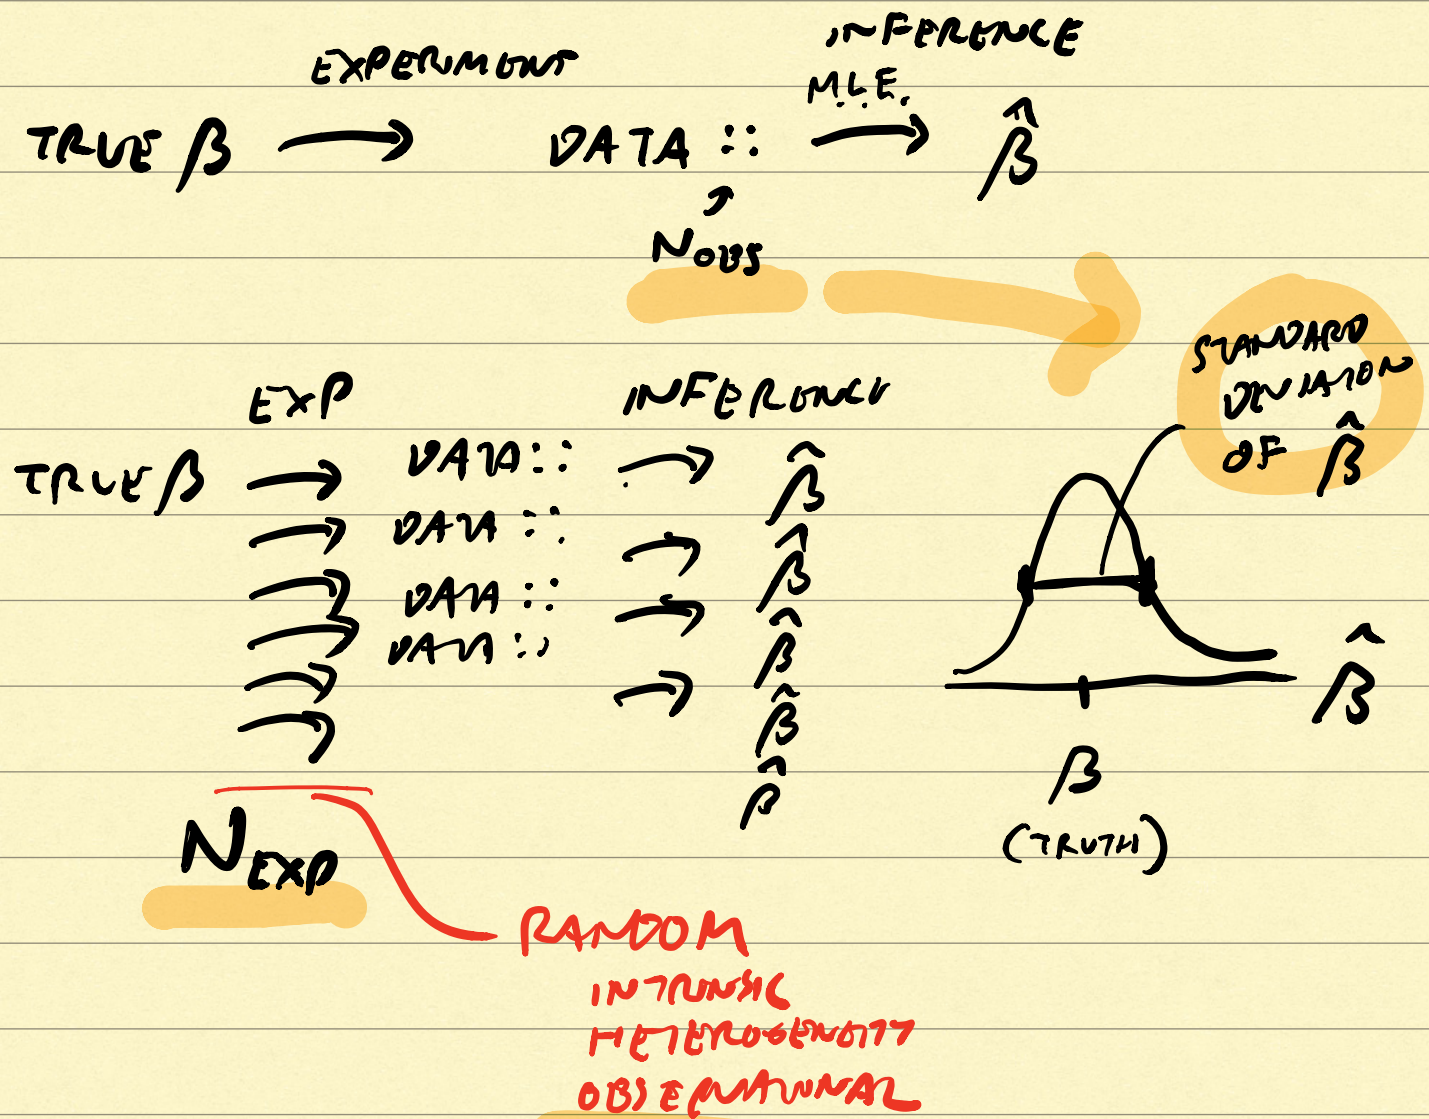 EXPERIMENT
INFERENCE
M.L.E.
TRUE β → DATA :: → β̂
N OBS
STANDARD
DEVIATION
OF β̂
EXP INFERENCE
TRUE β → DATA :: → β̂
→ DATA :: → β̂
→ DATA :: → β̂
→ DATA :: → β̂
→ β̂
→
β̂
β
(TRUTH)
N EXP
RANDOM
INTRINSIC
HETEROGENEITY
OBSERVATIONAL